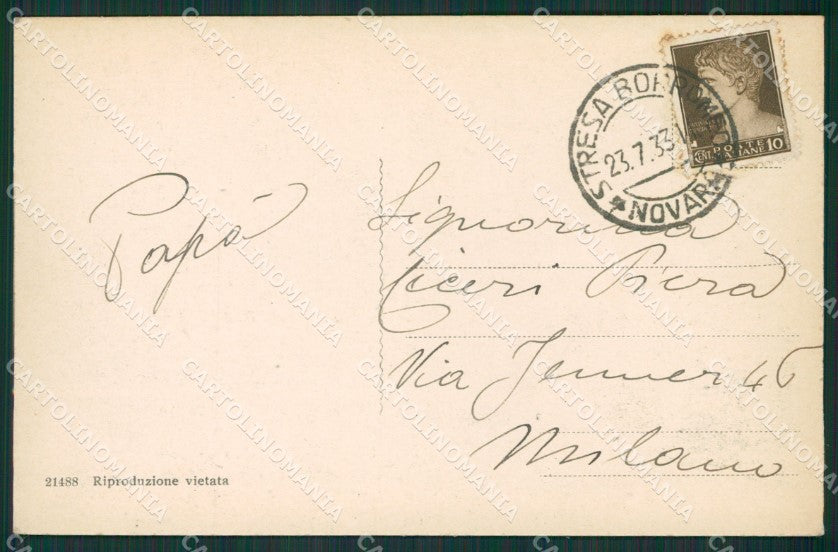 STRESA BORROMEO
23.7.33
NOVARA
POSTE
ITALIANE
CENT. 10
Papà
Signorina
Ciceri Piera
Via Jenner 46
Milano
21488 Riproduzione vietata
CARTOLINOMANIA